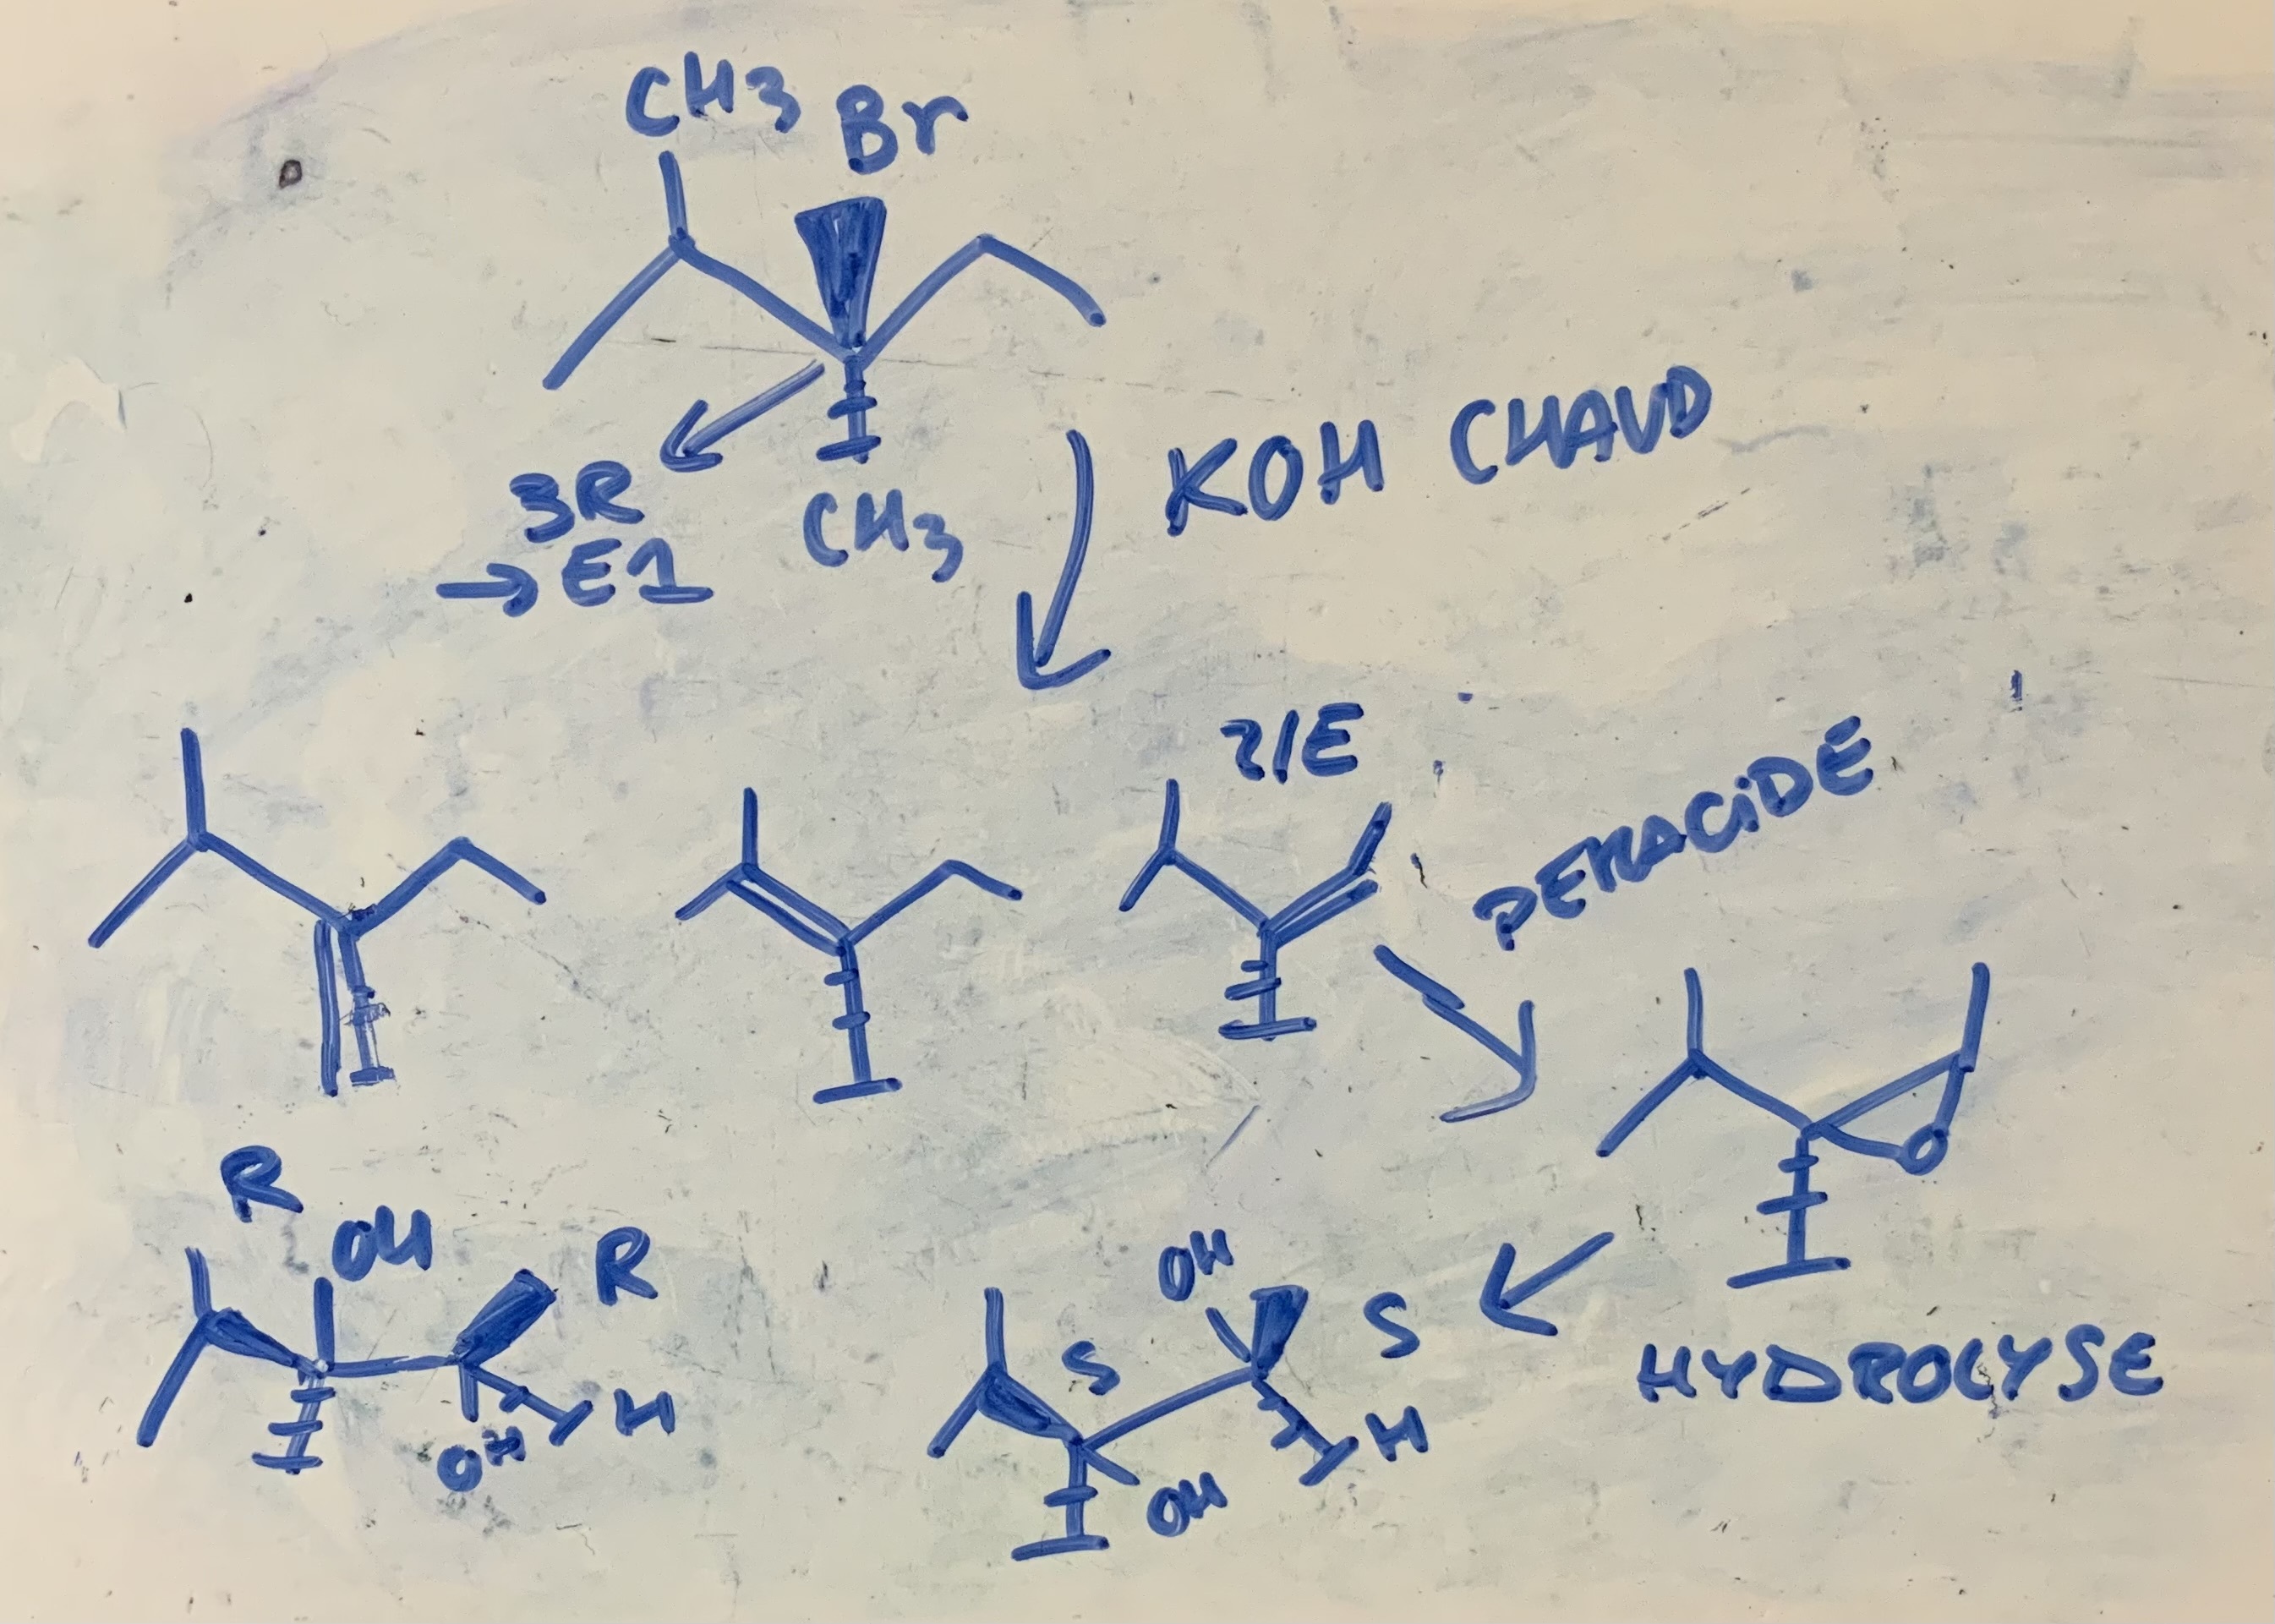 CH3 Br
3R
→ E1
CH3
KOH CHAUD
Z/E
PERACiDE
R
OH
R
OH
H
OH
S
S
H
OH
O
HYDROLYSE